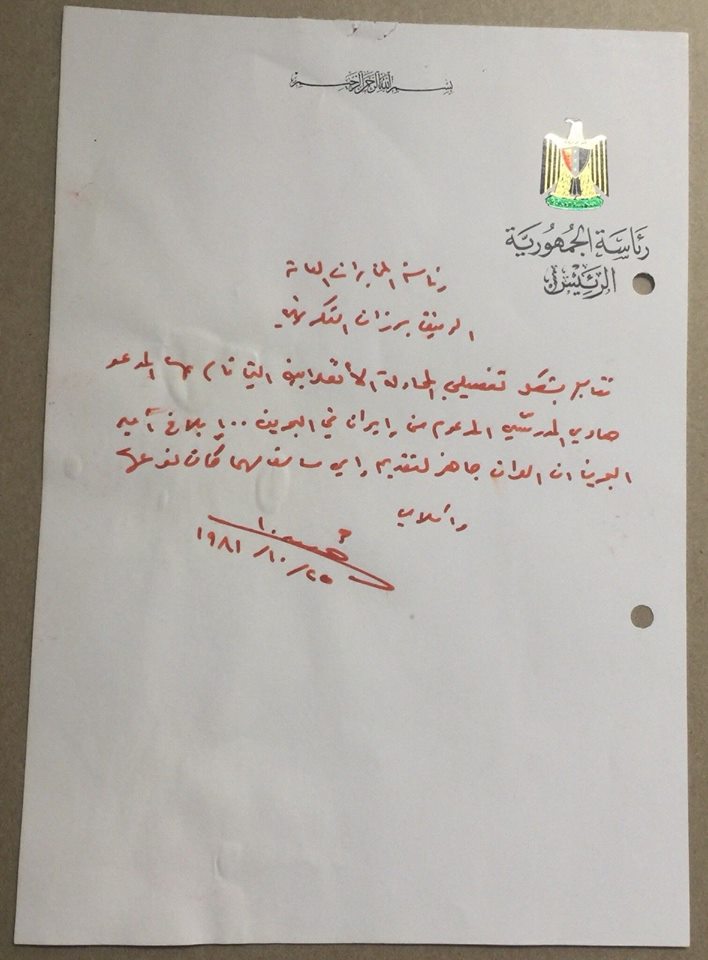 بسم الله الرحمن الرحيم
رئاسة الجمهورية
الرئيس
رئاسة المخابرات العامة
الرفيق برزان التكريتي
تتابع بشكل تفصيلي المحاولة الأنقلابية التي قام بها المدعو
هادي المدرسّي المدعوم من إيران في البحرين ... بلاغ أمير
البحرين ان العراق جاهز لتقديم اي مهما كان نوعها
والسلام
٢٥/١٠/١٩٨١